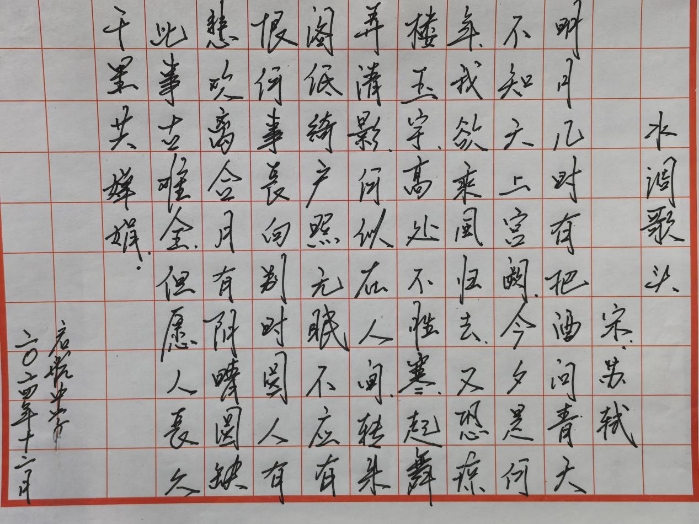 水调歌头
宋.苏轼
明月几时有把酒问青天
不知天上宫阙.今夕是何
年.我欲乘风归去.又恐琼
楼玉宇.高处不胜寒.起舞
弄清影.何似在人间.转朱
阁低绮户照无眠不应有
恨何事长向别时圆人有
悲欢离合月有阴晴圆缺
此事古难全.但愿人长久
千里共婵娟.
二〇二四年十二月